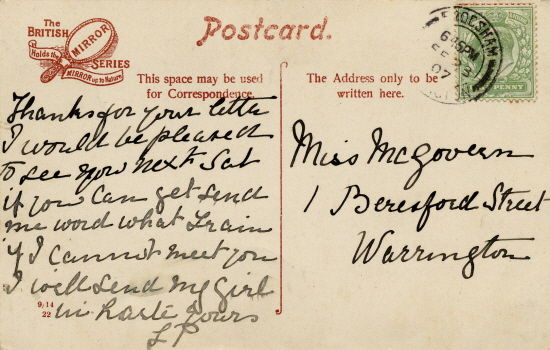 The
BRITISH
MIRROR
Holds the
SERIES
MIRROR up to Nature
Postcard.
This space may be used
for Correspondence.
The Address only to be
written here.
FRODSHAM
6.45PM
SE 23
07
PENNY
Thanks for your letter
I would be pleased
to see you next Sat
if you can get send
me word what train
if I cannot meet you
I well send my girl
in haste yours
LP
9/14
22
Miss McGovern
1 Beresford Street
Warrington